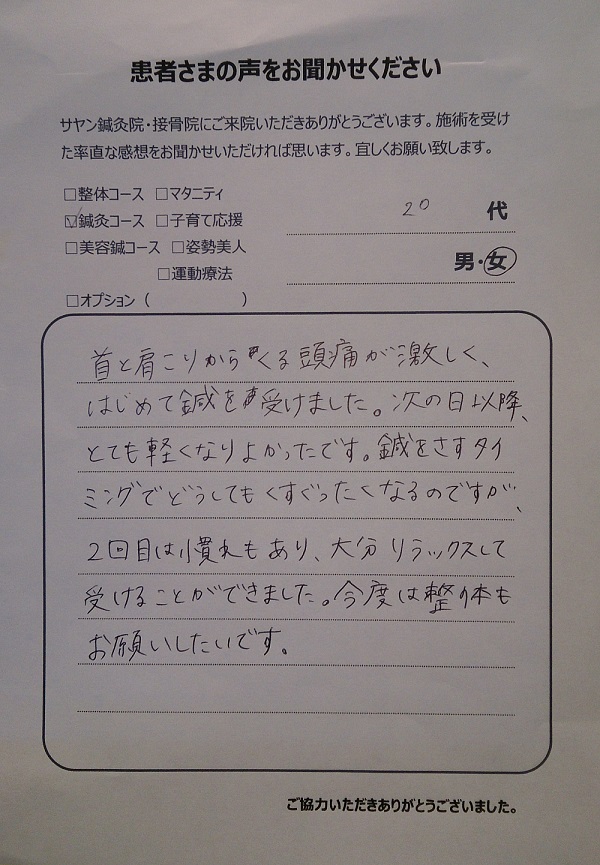 患者さまの声をお聞かせください
サヤン鍼灸院・接骨院にご来院いただきありがとうございます。施術を受け
た率直な感想をお聞かせいただければ思います。宜しくお願い致します。
□整体コース □マタニティ
☑鍼灸コース □子育て応援
□美容鍼コース □姿勢美人
□運動療法
□オプション（ ）
20 代
男・女
首と肩こりからくる頭痛が激しく、
はじめて鍼を受けました。次の日以降、
とても軽くなりよかったです。鍼をさすタイ
ミングでどうしてもくすぐったくなるのですが、
2回目は慣れもあり、大分リラックスして
受けることができました。今度は整体も
お願いしたいです。
ご協力いただきありがとうございました。